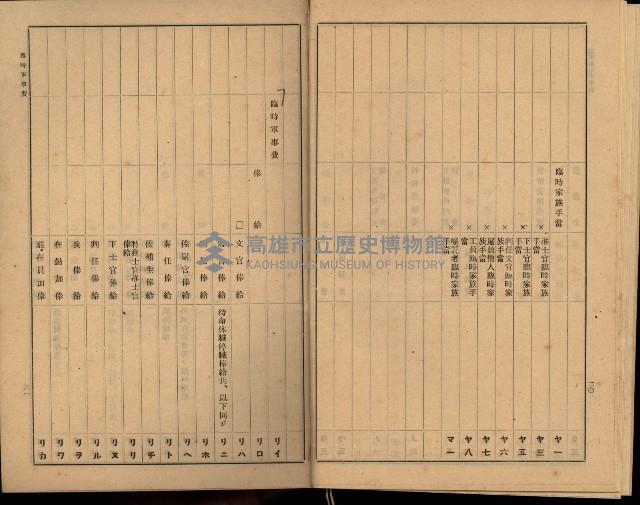 二〇
臨時家族手當
准士官臨時家族手當
ヤ一
×下士官臨時家族手當
ヤ三
×
ヤ五
×判任文官臨時家族手當
ヤ六
×雇員傭人臨時家族手當
ヤ七
×工員臨時家族手當
ヤ八
×囑託者臨時家族手當
マ一
臨時軍事費
リイ
俸給
リロ
□文官俸給
リハ
俸給
待命休職停職俸給共、以下同ジ
リニ
俸給
リホ
佐尉官俸給
リヘ
奏任俸給
リト
候補生俸給
リチ
特務士官准士官俸給
リリ
下士官俸給
リヌ
判任俸給
リル
兵俸給
リヲ
在勤加俸
リワ
加俸
リカ
臨時軍事費
高雄市立歷史博物館
KAOHSIUNG MUSEUM OF HISTORY